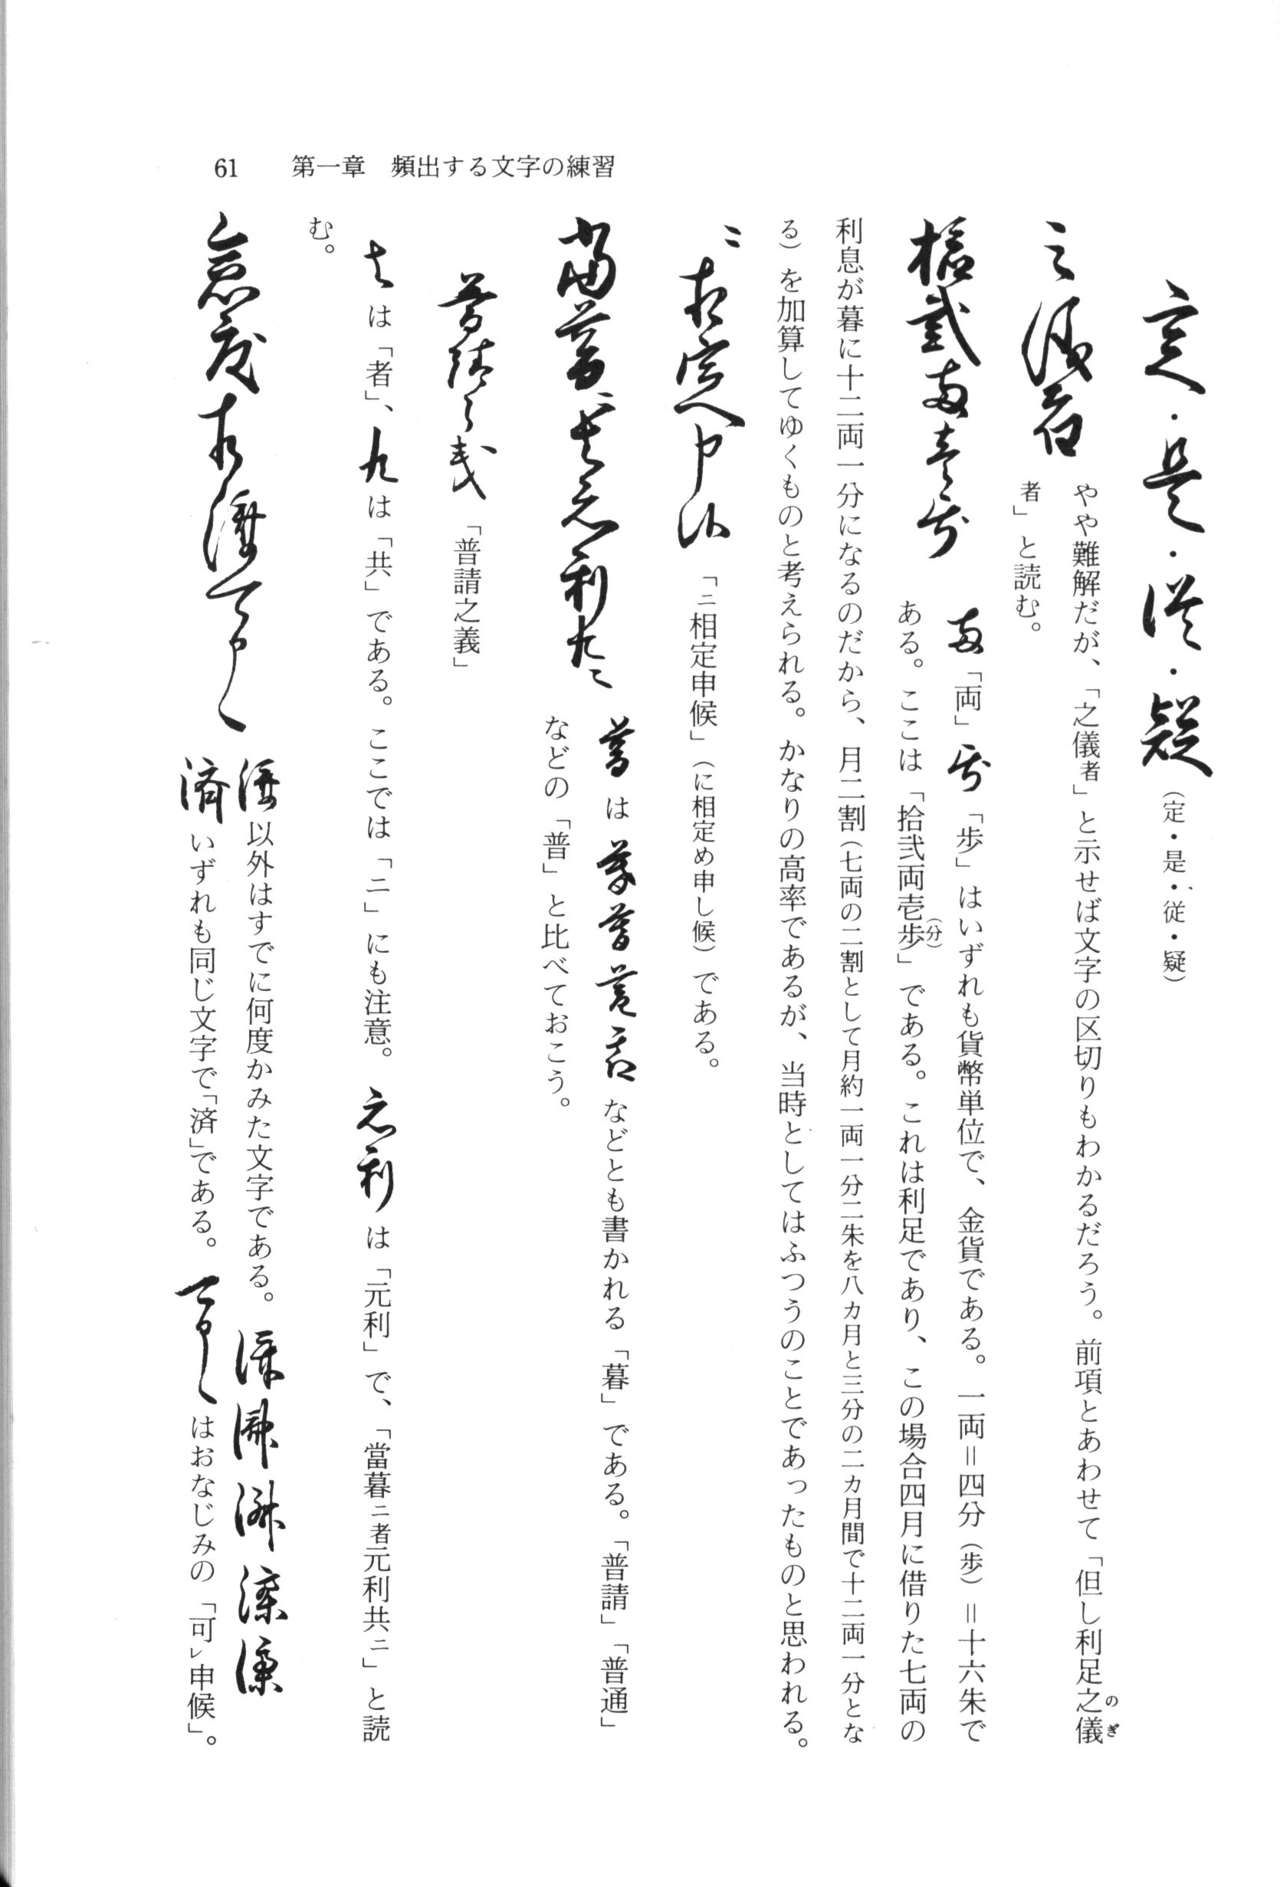 61　第一章　頻出する文字の練習
定・是・従・疑（定・是・従・疑）
之儀者
やや難解だが、「之儀者」と示せば文字の区切りもわかるだろう。前項とあわせて「但し利足之儀
のぎ
者」と読む。
拾弐両壱歩
両「両」歩「歩」はいずれも貨幣単位で、金貨である。一両＝四分（歩）＝十六朱で
ある。ここは「拾弐両壱歩」である。これは利足であり、この場合四月に借りた七両の
（分）
利息が暮に十二両一分になるのだから、月二割（七両の二割として月約一両一分二朱を八カ月と三分の二カ月間で十二両一分とな
る）を加算してゆくものと考えられる。かなりの高率であるが、当時としてはふつうのことであったものと思われる。
ニ相定申候
「ニ相定申候」（に相定め申し候）である。
當暮ニ者元利共ニ
暮は暮暮暮暮などとも書かれる「暮」である。「普請」「普通」
などの「普」と比べておこう。
普請之義
「普請之義」
者は「者」、共は「共」である。ここでは「ニ」にも注意。元利は「元利」で、「當暮ニ者元利共ニ」と読
む。
急度相済可申候
済以外はすでに何度かみた文字である。済済済済済
済いずれも同じ文字で「済」である。可申候はおなじみの「可レ申候」。